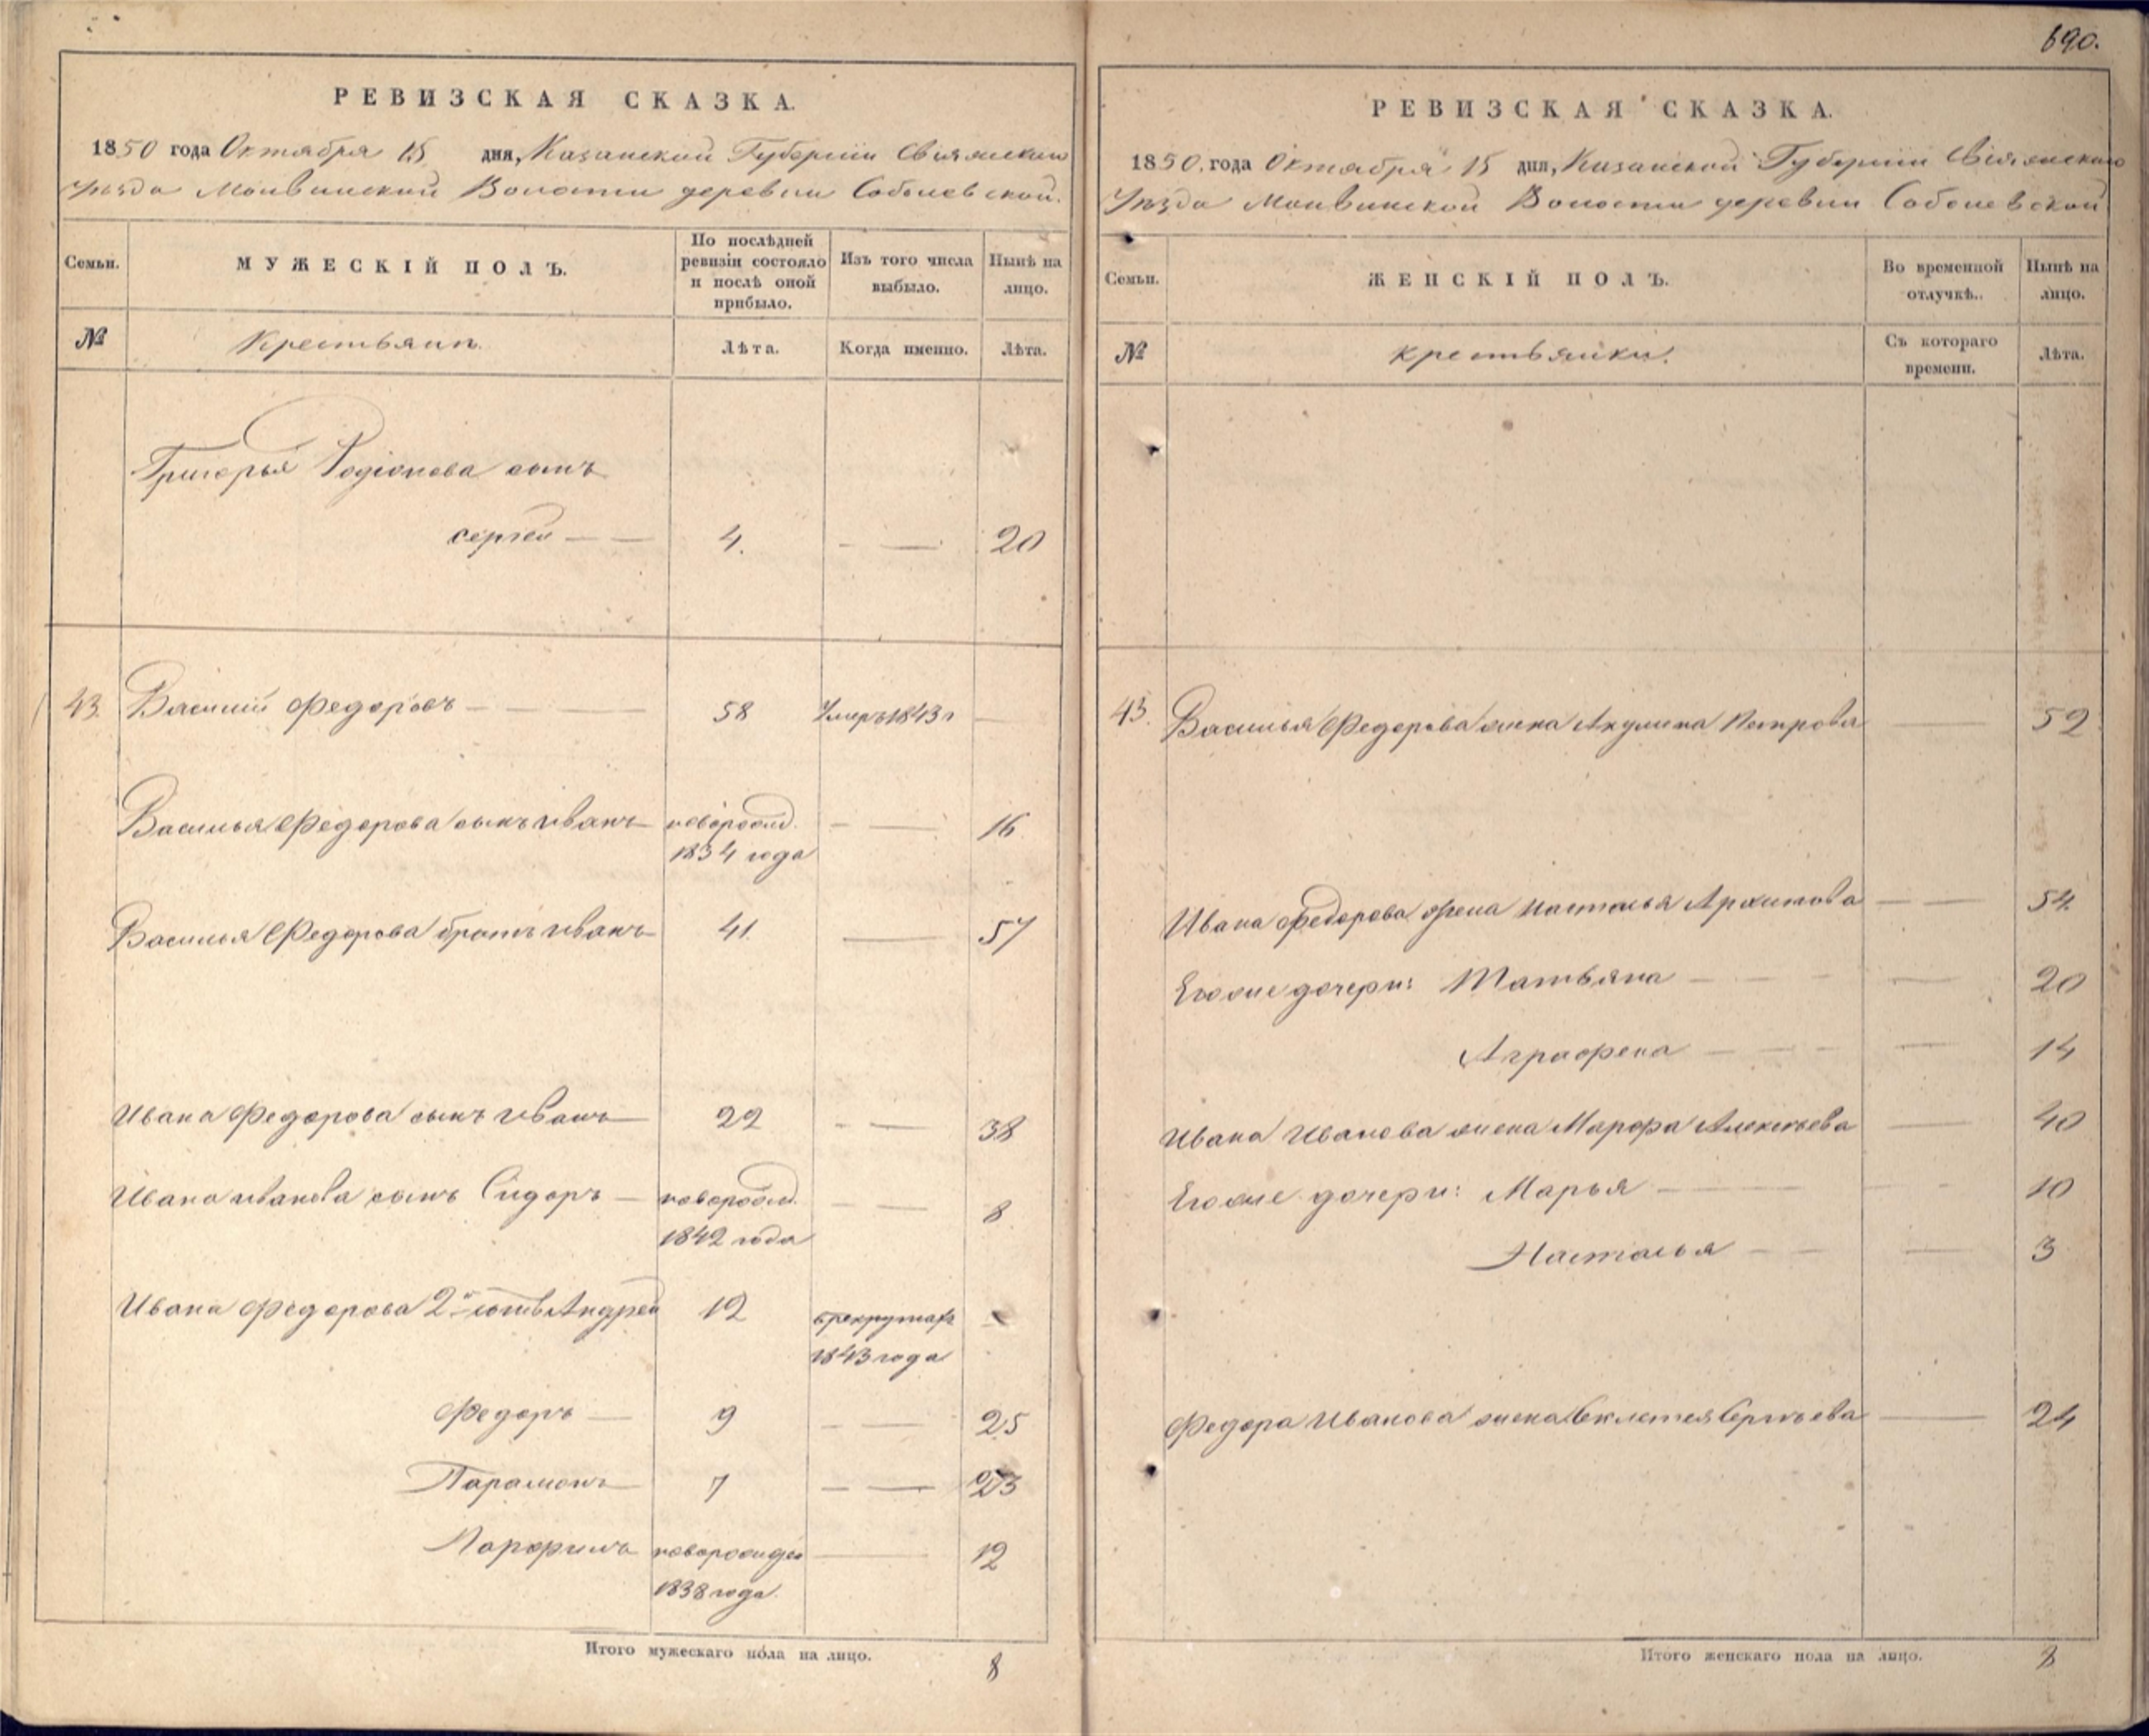 690.
РЕВИЗСКАЯ СКАЗКА.
1850 года Октября 15 дня, Казанской Губернiи Свiяжскаго
Уѣзда Молвинской Волости деревни Соболевской.
Семьи. МУЖЕСКIЙ ПОЛЪ. По послѣдней ревизiи состояло и послѣ оной прибыло. Изъ того числа выбыло. Нынѣ на лицо.
№ Крестьянъ. Лѣта. Когда именно. Лѣта.
Григорья Родiонова сынъ
Сергей 4. 20
43. Василий Федоровъ 58 Умеръ 1843 г
Василья Федорова сынъ Иванъ новорожд. 16
1834 года
Василья Федорова братъ Иванъ 41. 57
Ивана Федорова сынъ Иванъ 22 38
Ивана Иванова сынъ Сидоръ новорожд. 8
1842 года
Ивана Федорова 2й Андрей 12 в рекрутах
1843 года
Федоръ 9 25
Парамонъ 7 23
Парфилъ 12
1838 года.
Итого мужескаго пола на лицо. 8
РЕВИЗСКАЯ СКАЗКА.
1850. года Октября 15 дня, Казанской Губернiи Свiяжскаго
Уѣзда Молвинской Волости деревни Соболевской
Семьи. ЖЕНСКIЙ ПОЛЪ. Во временной отлучкѣ. Нынѣ на лицо.
№ крестьянки. Съ котораго времени. Лѣта.
43. Василья Федорова жена Акулина Петрова 52
Ивана Федорова жена Настасья Архипова 54
Егоже дочери: Татьяна 20
Аграфена 14
Ивана Иванова жена Марфа Алексѣева 40
Егоже дочери: Марья 10
Настасья 3
Федора Иванова жена Секлетея Сергѣева 24
Итого женскаго пола на лицо. 8